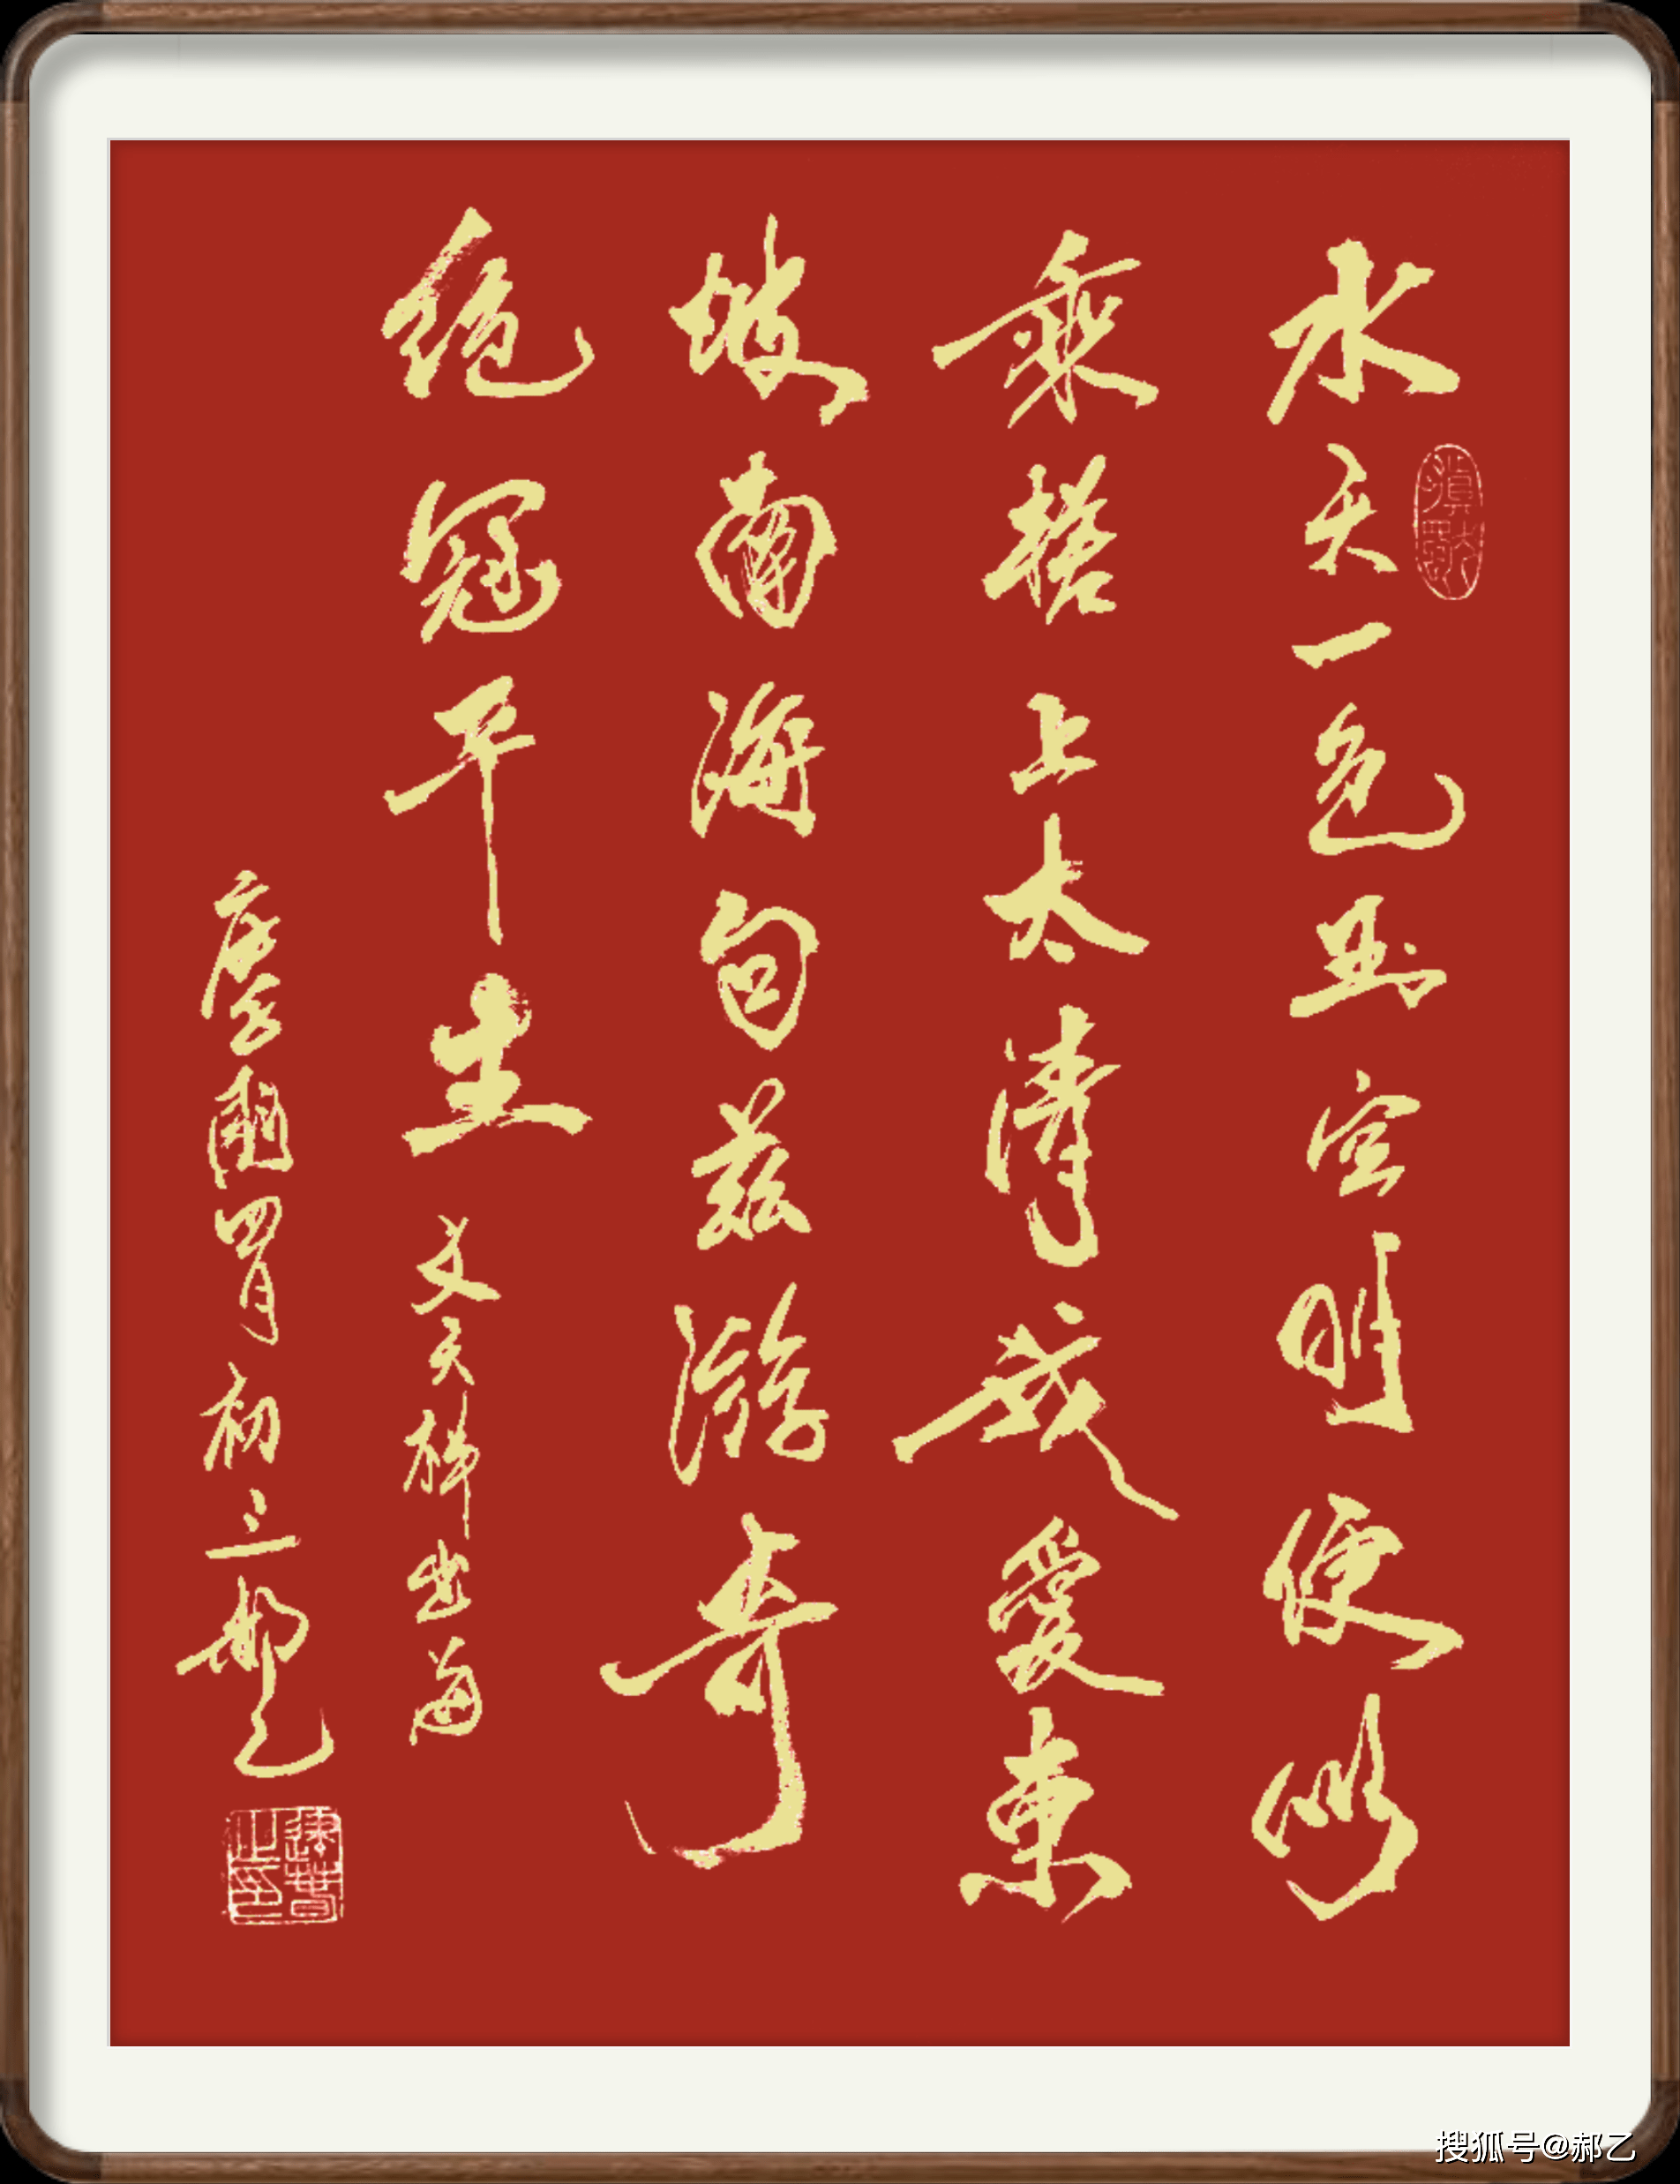 水天一色玉空明便似
乘槎上太清我愛東
坡南海句兹游奇
绝冠平生 文天祥出海
四月初 郝乙
搜狐号@郝乙